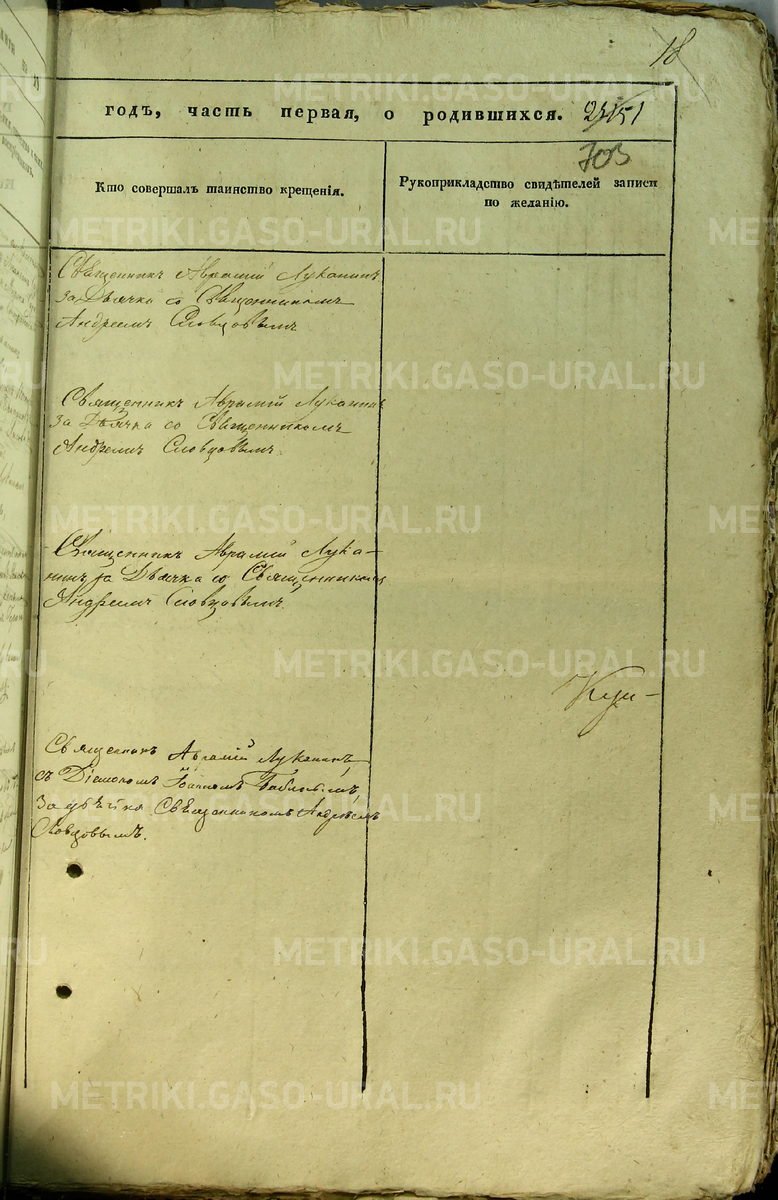 18
годъ, часть первая, о родившихся.
703
Кто совершалъ таинство крещенія.
Рукоприкладство свидѣтелей записи
по желанію.
Священникъ Аврамій Луканинъ
за Дьячка со Священникомъ
Андреемъ Словцовымъ
Священникъ Аврамій Луканинъ
за Дьячка со Священникомъ
Андреемъ Словцовымъ.
Священникъ Аврамій Лука-
нинъ за Дьячка со Священникомъ
Андреемъ Словцовымъ.
Священникъ Аврамій Луканинъ
съ Діакономъ Іоанномъ
За Священникомъ Андреемъ
Словцовымъ.
METRIKI.GASO-URAL.RU